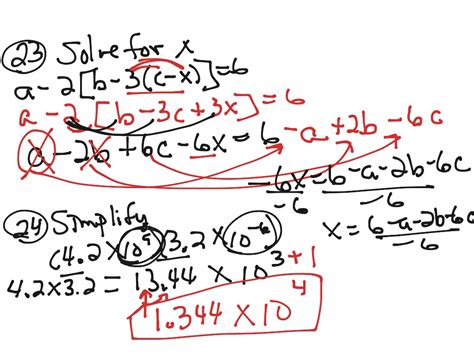 23 Solve for x
a-2[b-3(c-x)]=6
a-2[b-3c+3x]=6
a-2b+6c-6x=6-a+2b-6c
-6x/-6=6-a-2b-6c/-6
x=6-a-2b-6c/-6
24 Simplify
(4.2×10⁹)(3.2×10⁻⁶)
4.2×3.2=13.44×10³⁺¹
1.344×10⁴